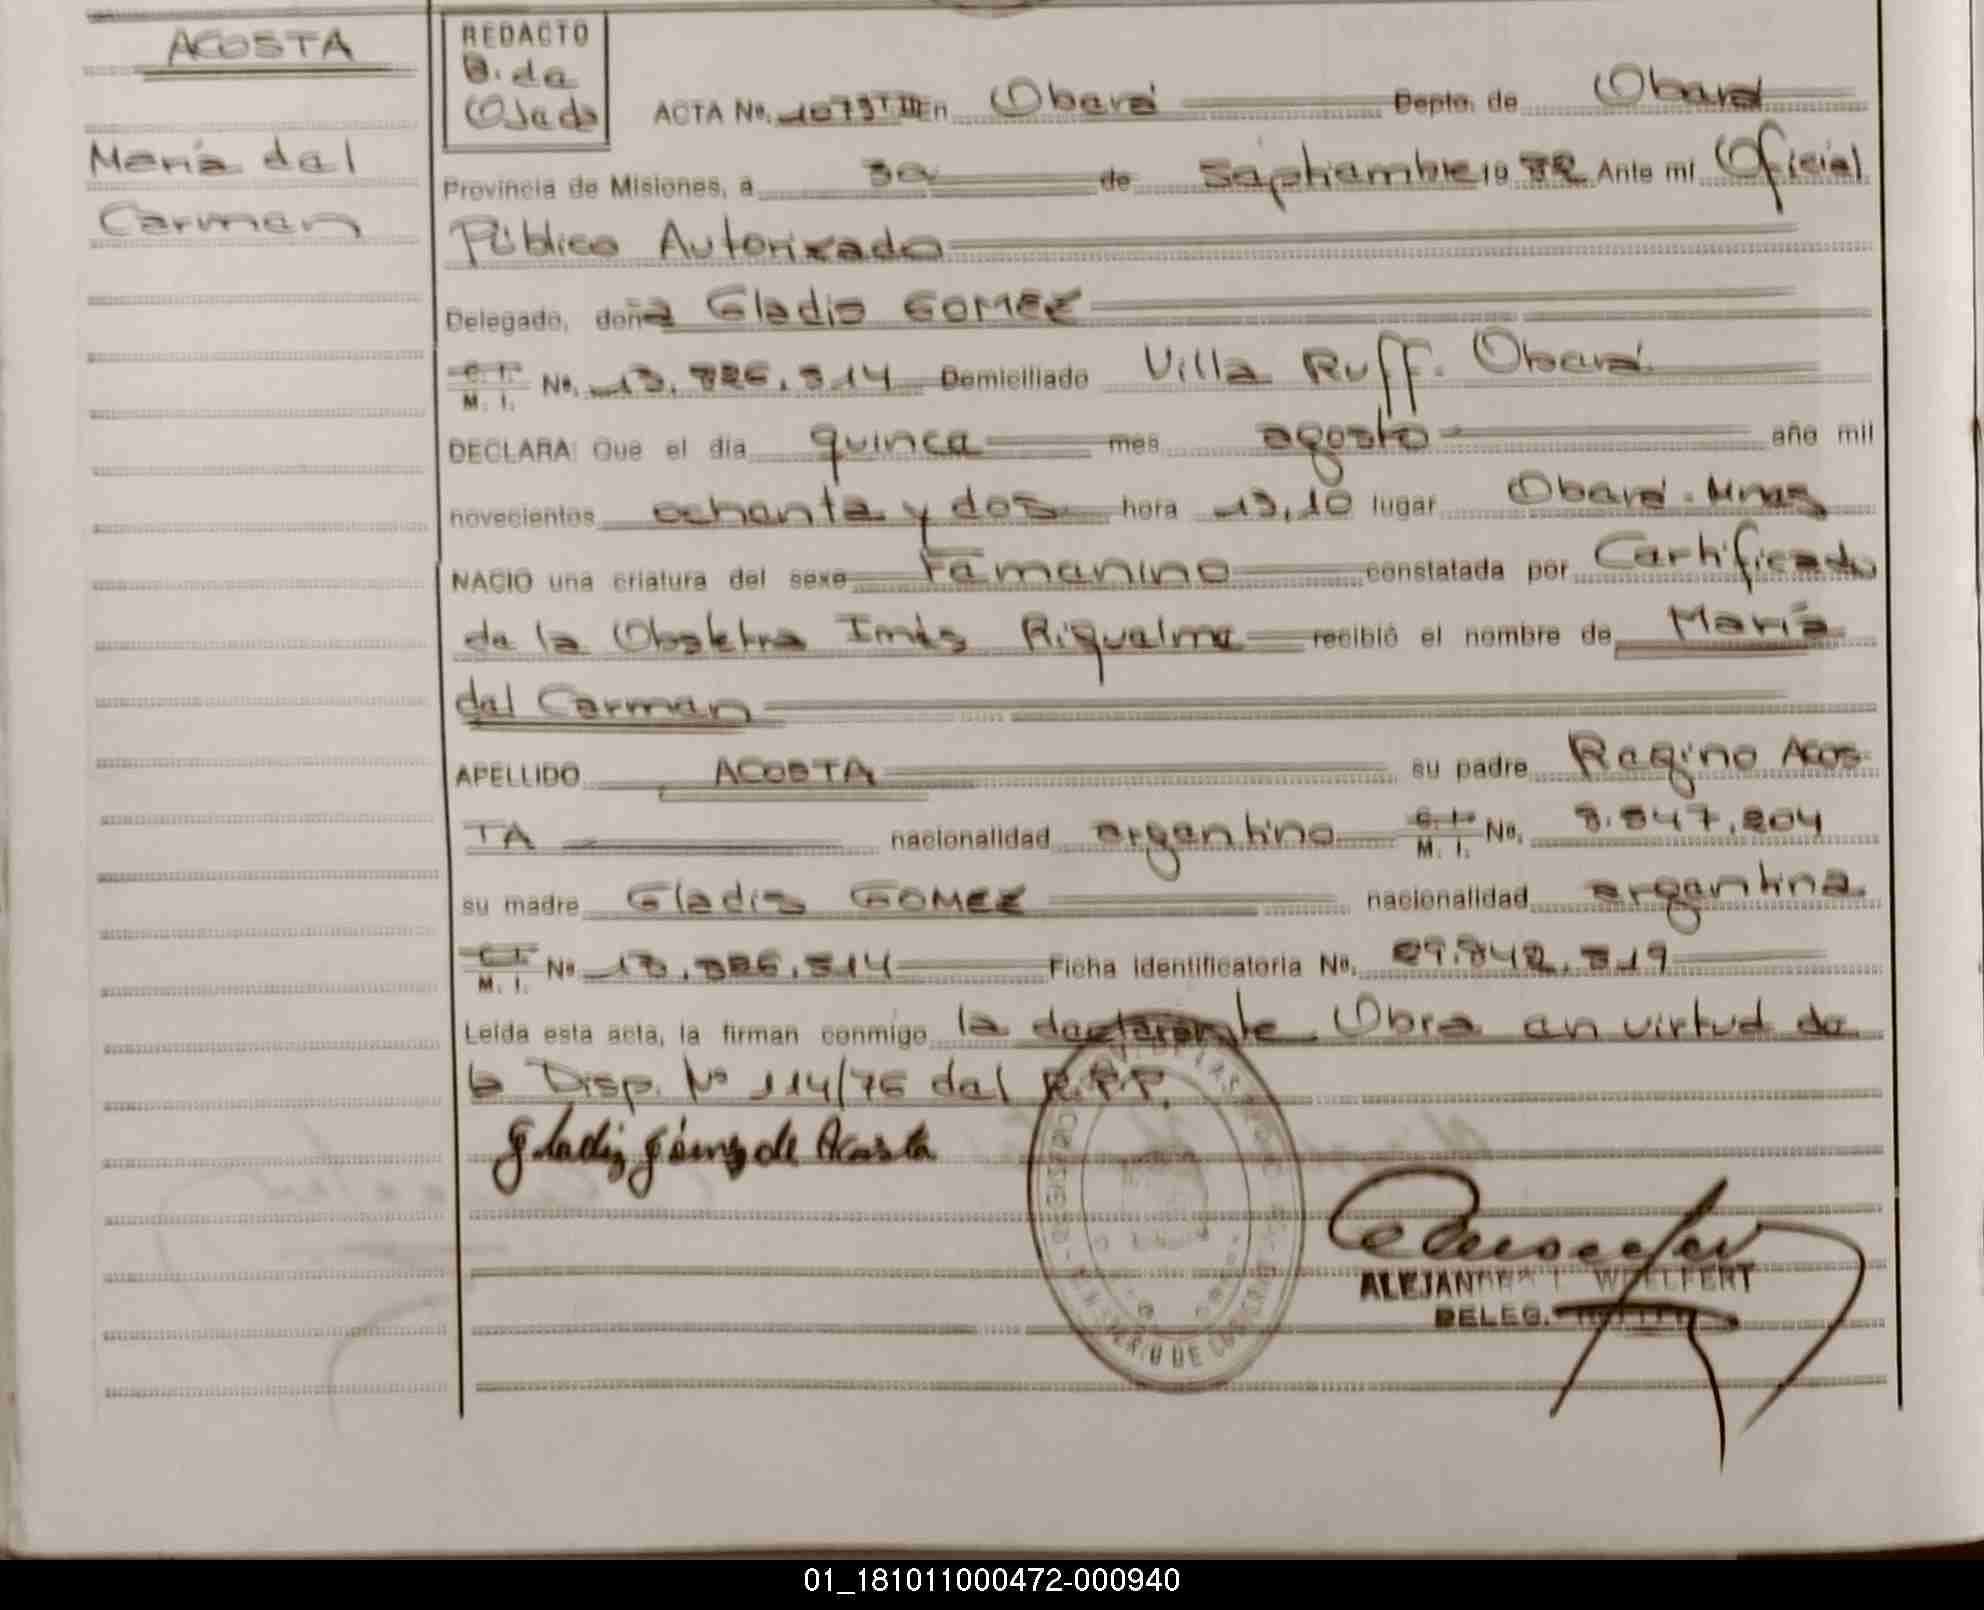 ACOSTA
María del
Carmen
REDACTO
B. de
Ojeda
ACTA No. 1079 T III En Oberá Depto. de Oberá
Provincia de Misiones, a 30 de Septiembre 19 82 Ante mí Oficial
Público Autorizado
Delegado, doña Gladis GOMEZ
C. I. M. I. No. 13.886.514 Domiciliado Villa Ruff. Oberá
DECLARA: Que el día quince mes agosto año mil
novecientos ochenta y dos hora 13,10 lugar Oberá. Mnes
NACIO una criatura del sexo Femenino constatada por Certificado
de la Obstetra Inés Riquelme recibió el nombre de María
del Carmen
APELLIDO ACOSTA su padre Regino ACOS
TA nacionalidad argentino C. I. M. I. No. 8.547.204
su madre Gladis GOMEZ nacionalidad argentina.
C. I. M. I. No 13.886.514 Ficha Identificatoria No. 29.842.519
Leída esta acta, la firman conmigo la declarante. Obra en virtud de
la Disp. No 114/76 del R.P.P.
Gladis Gómez de Acosta
REGISTRO
DE
ALEJANDRA I. WELFERT
DELEG.
01_181011000472-000940